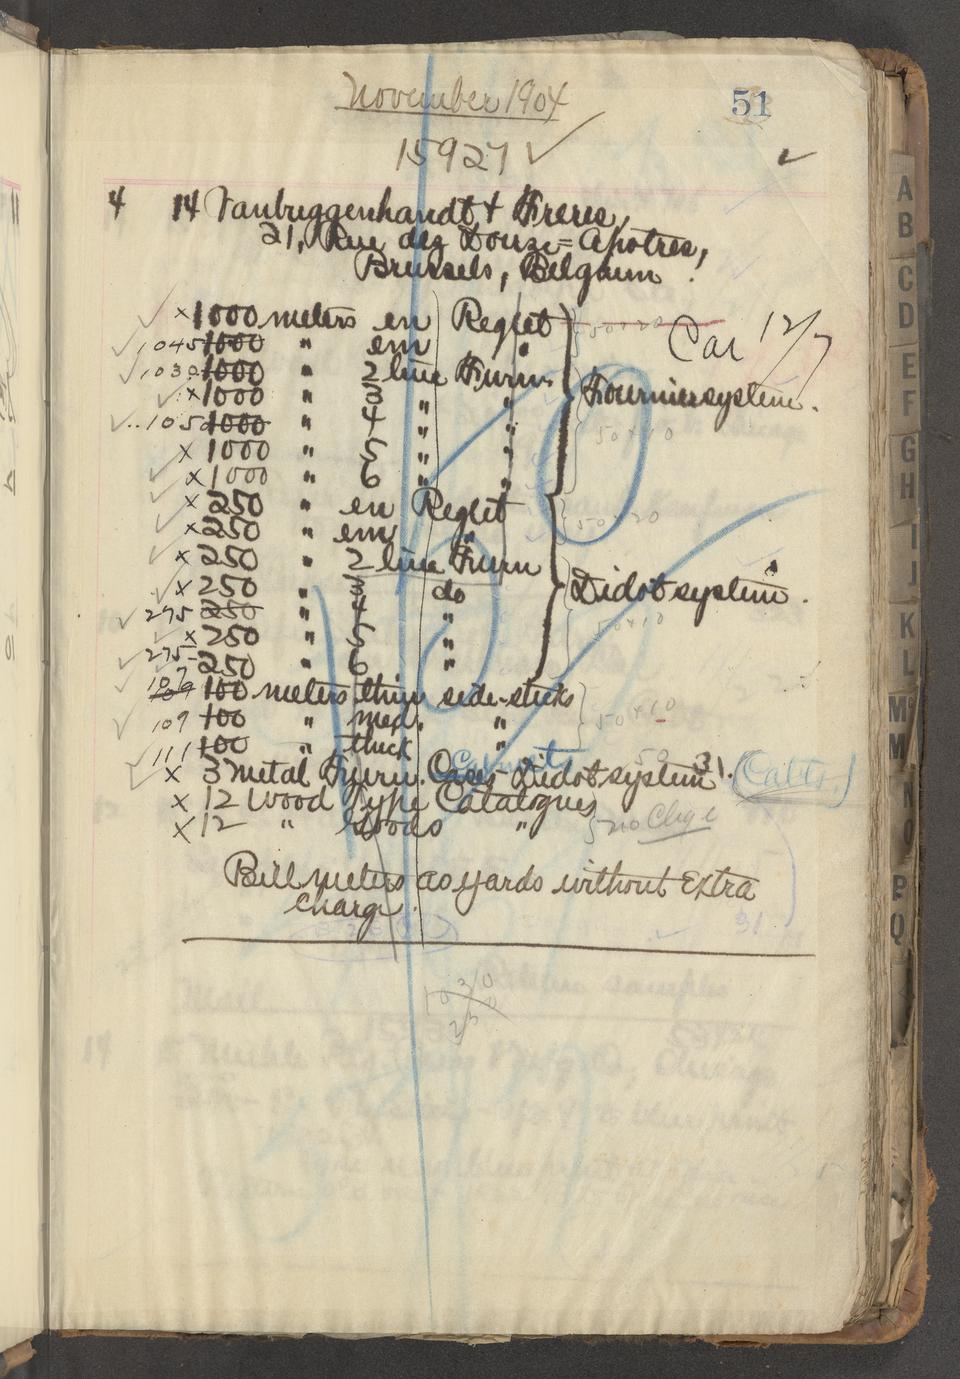 November 1904
51
15927 ✓
4 14 Vanbuggenhandt & Freres,
21, Rue des Douze=Apotres,
Brussels, Belgium.
x 1000 meters en Reglet 50+20
Car 12/7
1045 1000 " em "
1030 1000 " 2 line Furn.
x 1000 " 3 " "
Fourniersystem.
1050 1000 " 4 " "
50+10
x 1000 " 5 " "
x 1000 " 6 " "
x 250 " en Reglet
50+20
x 250 " em "
x 250 " 2 line Furn
x 250 " 3 do
Didotsystem.
275 250 " 4 "
50+10
x 250 " 5 "
275 250 " 6 "
107 109 100 meters thin side-sticks
109 100 " med. "
50+10
111 100 " thick "
x 3 Metal Furn. Cases Cabinets - Didotsystem 31. (Cabts.)
x 12 Wood Type Catalogues
x 12 " Goods "
no Chge
Bill meters as yards without Extra
charge.
31
A
B
C
D
E
F
G
H
I
J
K
L
M
Mc
N
O
P
Q